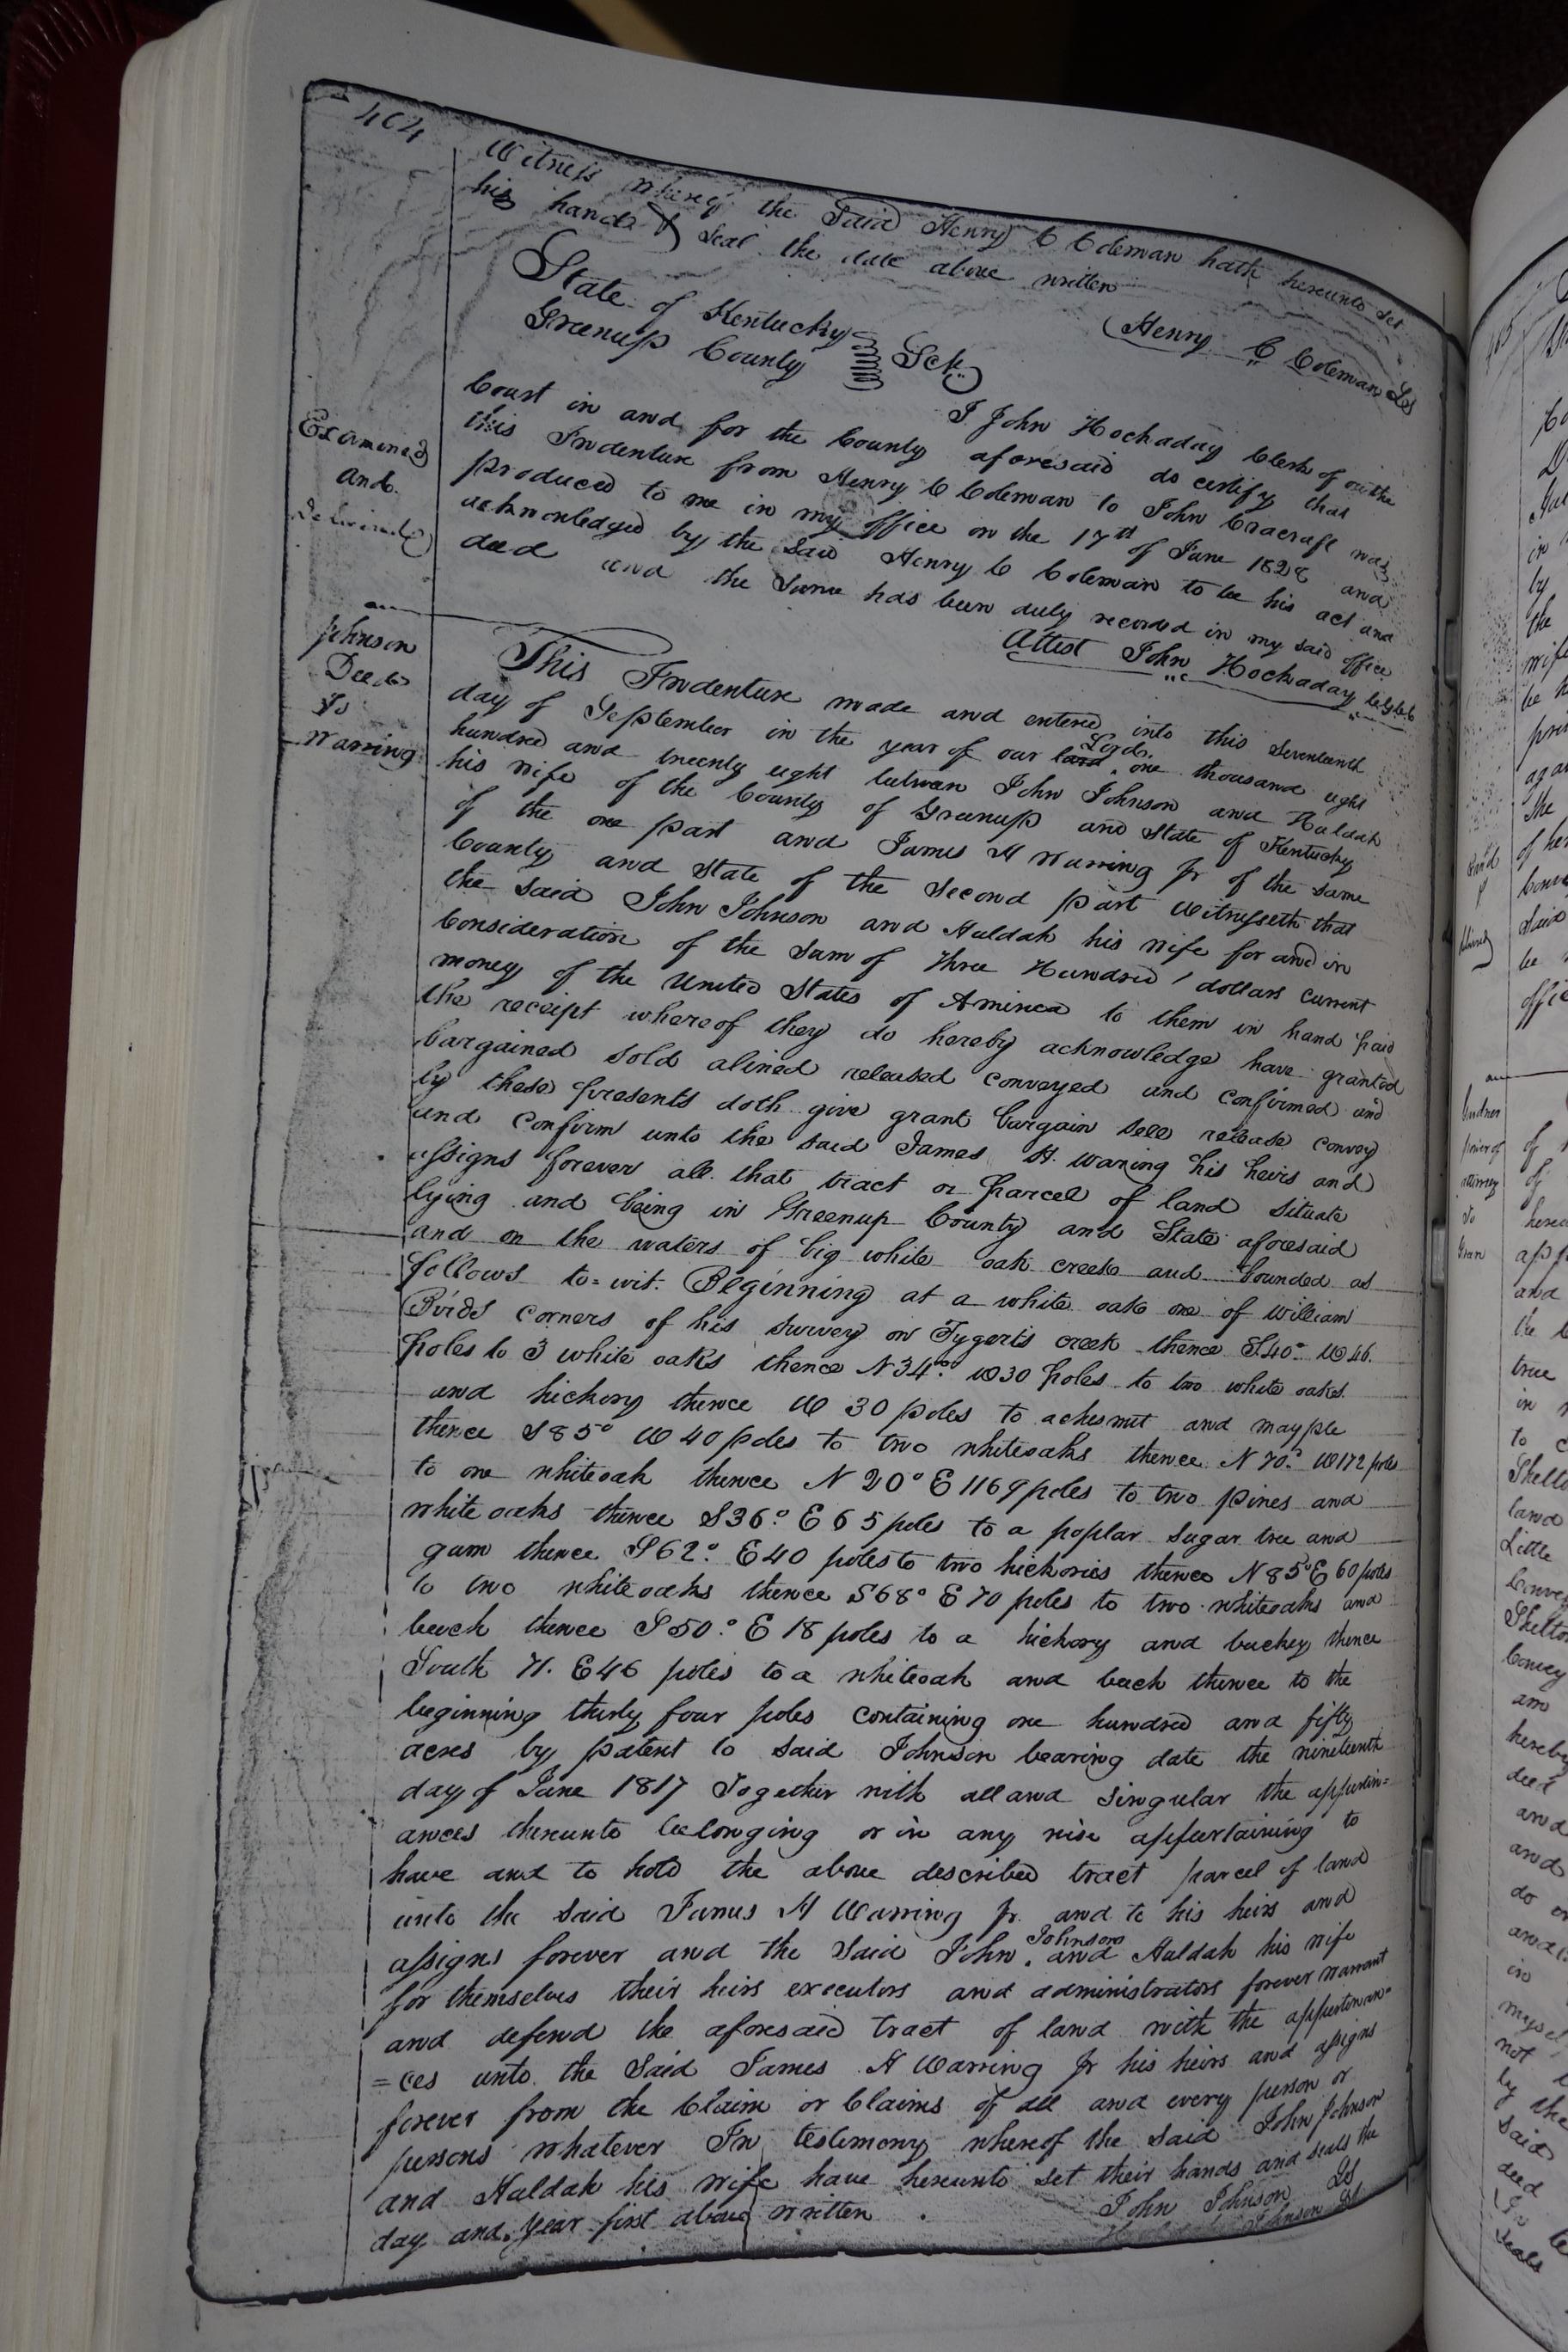 404
Witness whereof the Said Henry C Coleman hath hereunto set
his hand & seal the date above written
Henry C Coleman LS
State of Kentucky
Greenup County Sct
I John Hockaday Clerk of the
Court in and for the County aforesaid do certify that
this Indenture from Henry C Coleman to John Cracraft was
produced to me in my office on the 17th of June 1828 and
acknowledged by the Said Henry C Coleman to be his act and
deed and the Same has been duly recorded in my said office
Attest John Hockaday
Examined
and
Delivered
Johnson
Deed
To
Warring
This Indenture made and entered into this Seventeenth
day of September in the year of our Lord one thousand eight
hundred and twenty eight between John Johnson and Huldah
his wife of the County of Greenup and State of Kentucky
of the one part and James H Warring Jr of the same
County and State of the Second part Witnesseth that
the Said John Johnson and Huldah his wife for and in
Consideration of the Sum of Three Hundred dollars current
money of the United States of Aminca to them in hand paid
the receipt whereof they do hereby acknowledge have granted
bargained sold alined released conveyed and confirmed and
by these presents doth give grant bargain sell release convey
and confirm unto the said James H. Waring his heirs and
assigns forever all that tract or parcel of land situate
lying and being in Greenup County and State aforesaid
and on the waters of big white oak creek and bounded as
follows to=wit. Beginning at a white oak one of William
Birds corners of his survey on Tygerts creek thence S40° W46.
poles to 3 white oaks thence N34° W30 poles to two white oaks
and hickory thence W 30 poles to achesnut and mayple
thence S85° W40 poles to two whiteoaks thence N 70° W172 poles
to one whiteoak thence N 20° E 1169 poles to two pines and
white oaks thence S36° E 65 poles to a poplar sugar tree and
gum thence S62° E40 poles to two hickories thence N85° E 60 poles
to two whiteoaks thence S68° E 70 poles to two whiteoaks and
beech thence S50° E 18 poles to a hickory and buckey thence
South 71. E46 poles to a whiteoak and beech thence to the
beginning thirty four poles containing one hundred and fifty
acres by patent to said Johnson bearing date the nineteenth
day of June 1817 Together with all and singular the appurtin=
ances thereunto belonging or in any wise appurtaining to
have and to hold the above described tract parcel of land
unto the said James H Warring Jr. and to his heirs and
assigns forever and the Said John Johnson and Huldah his wife
for themselves their heirs executors and administrators forever warrant
and defend the aforesaid tract of land with the appurtinan=
=ces unto the Said James H Warring Jr his heirs and assigns
forever from the Claim or Claims of all and every person or
persons whatever In testimony whereof the said John Johnson
and Huldah his wife have hereunto set their hands and seals the
day and year first above written
John Johnson LS
Johnson LS